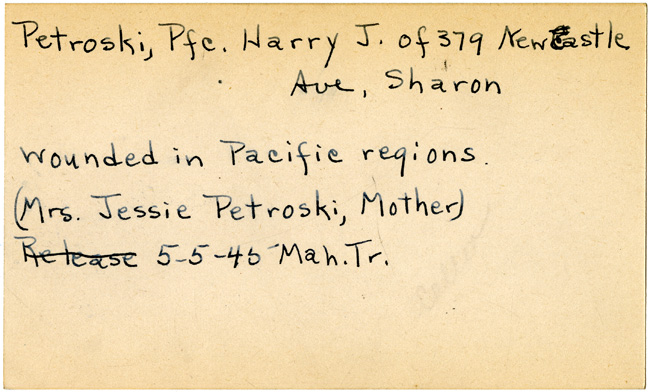 Petroski, Pfc. Harry J. of 379 New Castle
Ave, Sharon
wounded in Pacific regions.
(Mrs. Jessie Petroski, Mother)
Release 5-5-45 Mah. Tr.